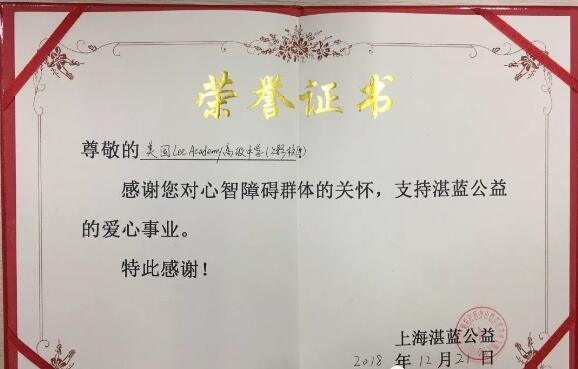 荣誉证书
尊敬的 美国Lee Academy高级中学(上海校区)
感谢您对心智障碍群体的关怀，支持湛蓝公益
的爱心事业。
特此感谢！
上海湛蓝公益
2018 年 12 月 21 日